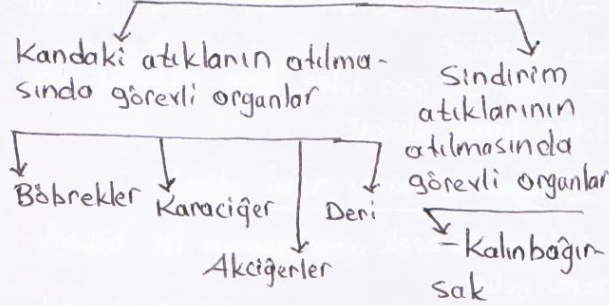 Kandaki atıklanın atılma-
sında görevli organlar
Böbrekler
Karaciğer
Akciğerler
Deri
Sindirim
atıklarının
atılmasında
görevli organlar
-Kalınbağır-
sak